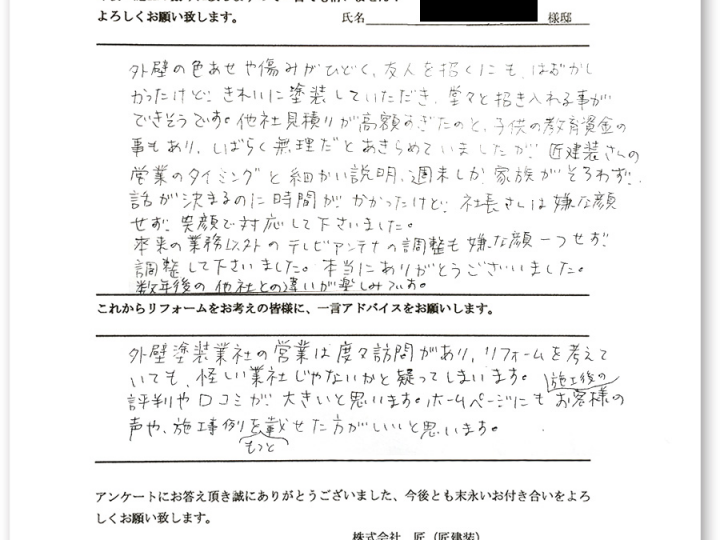 よろしくお願い致します。 氏名 様邸
外壁の色あせや傷みがひどく、友人を招くにも、はずかし
かったけど、きれいに塗装していただき、堂々と招き入れる事が
できそうです。他社見積りが高額すぎたのと、子供の教育資金の
事もあり、しばらく無理だとあきらめていましたが、匠建装さんの
営業のタイミングと細かい説明、週末しか家族がそろわず、
話が決まるのに時間がかかったけど、社長さんは嫌な顔
せず、笑顔で対応して下さいました。
本来の業務以外のテレビアンテナの調整も嫌な顔一つせず、
調整して下さいました。本当にありがとうございいました。
数年後の他社との違いが楽しみです。
これからリフォームをお考えの皆様に、一言アドバイスをお願いします。
外壁塗装業社の営業は度々訪問があり、リフォームを考えて
いても、怪しい業社じゃないかと疑ってしまいます。施工後の
評判や口コミが大きいと思います。ホームページにもお客様の
声や、施工事例を載せた方がいいと思います。
もっと
アンケートにお答え頂き誠にありがとうございました、今後とも末永いお付き合いをよろ
しくお願い致します。
株式会社 匠（匠建装）